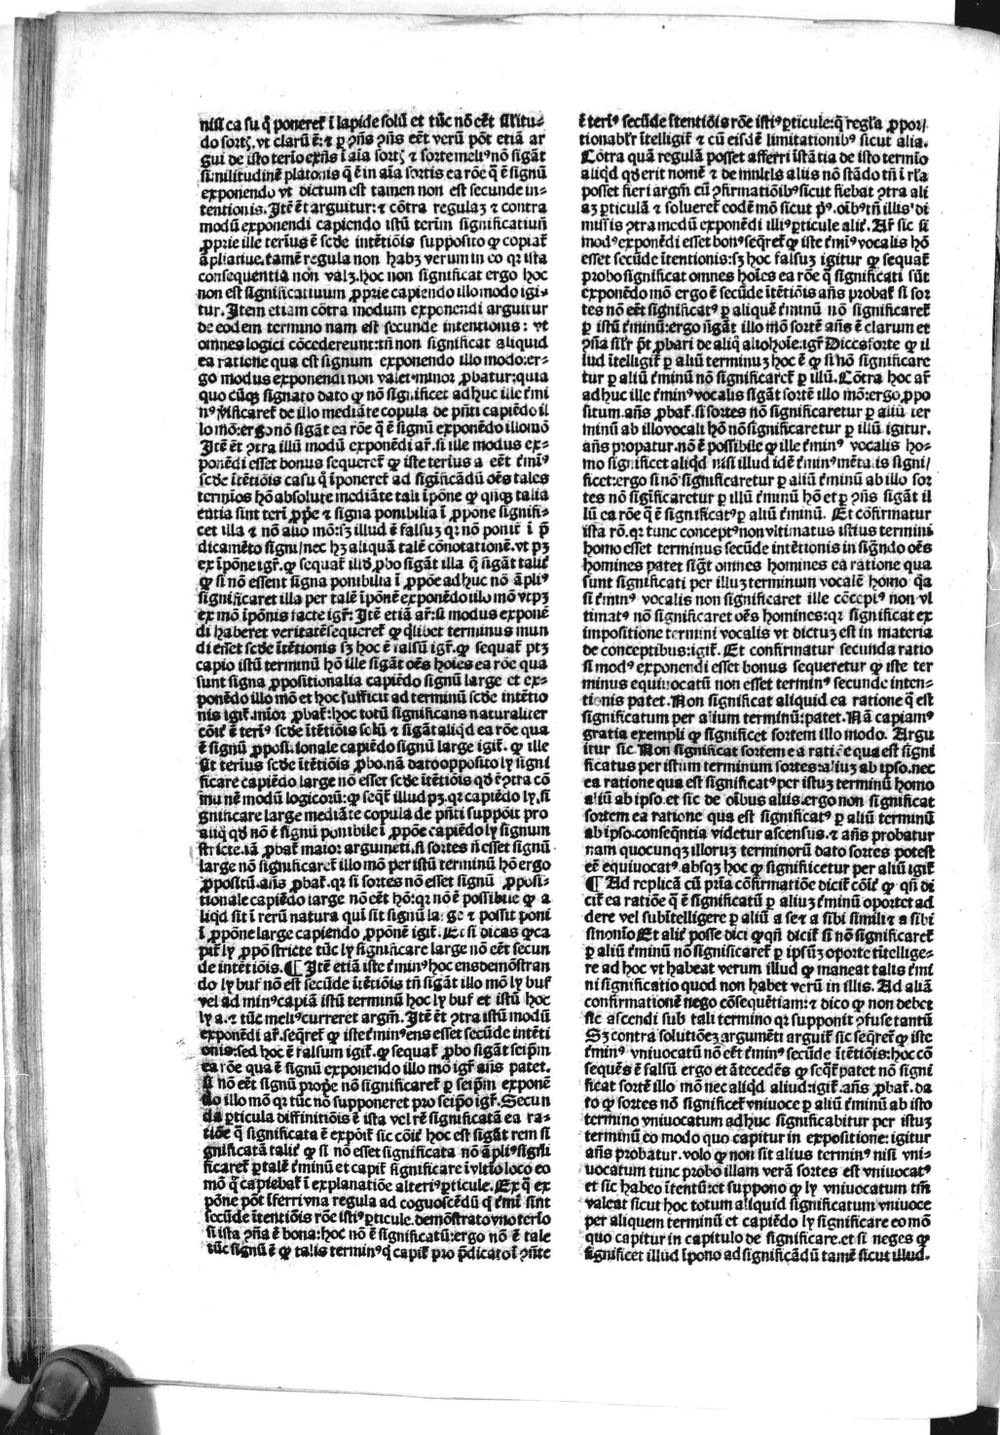 nisi ca su q̄ poneret̄ ī lapide solū et tūc nō eēt similitu-
do sort̄. vt clarū ē: ⁊ ꝑ ꝯñs ꝯñs eēt verū pōt etiā ar
gui de isto terīo exñs ī aīa sort̄ ⁊ sorte meliꝰ nō sigāt
similitudinē platonis q̄ ē in aīa sortis ea rōe q̄ ē signū
exponendo vt dictum est tamen non est secunde in-
tentionis. Itē ēt arguitur: ⁊ cōtra regulaꝫ ⁊ contra
modū exponendi capiendo istū terīm significatiuū
ꝓprie ille terīus ē scd̄e intētiōis supposito ꝙ copiat̄
āpliatiue. tamē regula non habꝫ verum in eo qꝛ ista
consequentia non valꝫ. hoc non significat ergo hoc
non est significatiuum ꝓprie capiendo illo modo igi-
tur. Item etiam cōtra modum exponendi arguitur
de eodem termino nam est secunde intentionis: vt
omnes logici cōcederent: tñ non significat aliquid
ea ratione qua est signum exponendo illo modo: er-
go modus exponendi non valet. minor ꝓbatur: quia
quo cūqꝫ signato dato ꝙ nō significet ad huc ille t̄mi
nꝰ significaret̄ de illo mediāte copula de p̄nti capiēdo il
lo mō: ergo nō sigāt ea rōe q̄ ē signū exponēdo illo mō
Itē ēt ꝯtra illū modū exponēdi ar̄. si ille modus ex-
ponēdi esset bonus sequeret̄ ꝙ iste terīus a eēt t̄miꝰ
scd̄e ītētiōis casu q̄ īponeret̄ ad significādū oēs tales
termīos hō absolute mediāte tali īpōne ꝙ quīqꝫ talia
entia sint teri ꝓpe ⁊ signa ponibilia ī ꝓpone signifi-
cet illa ⁊ nō alio mō: sꝫ illud ē falsuꝫ qꝛ nō ponit̄ ī p̄
dicamēto signi/nec hꝫ aliquā talē cōnotationē. vt pꝫ
ex īpone igr̄. ꝙ sequat̄ illd̄ ꝓbo sigāt illa q̄ sigāt talit̄
ꝙ si nō essent signa ponibilia ī ꝓpōe ad huc nō āpliꝰ
significaret illa per talē īponē exponēdo illo mō vt pꝫ
ex mō īponis facte igr̄. Itē etiā ar̄: si modus exponē
di haberet veritatē sequeret̄ ꝙ qlibet terminus mun
di esset scd̄e ītētionis sꝫ hoc ē falsuꝫ igr̄. ꝙ sequat̄ ptꝫ
capio istū terminū hō ille sigāt oēs hoīes ea rōe qua
sunt signa ꝓpositionalia capiēdo signū large et ex-
ponēdo illo mō et hoc sufficit ad terminū scd̄e intētio
nis igit̄. mīor ꝓbat̄: hoc totū significans naturaliter
cōit̄ ē terīꝰ scd̄e ītētiōis solū ⁊ sigāt aliqd̄ ea rōe qua
ē signū ꝓpositionale capiēdo signū large igit̄. ꝙ ille
sit terīus scd̄e ītētiōis ꝓbo. nā dato opposito ly signi
ficare capiēdo large nō esset scd̄e ītētiōis qd̄ ē ꝯtra cō
mu nē modū logicorū: ꝙ seqt̄ illud pꝫ. qꝛ capiēdo ly. si
gnificare large mediāte copula de p̄nti suppōit pro
aliq̄ qd̄ nō ē signū ponibile ī ꝓpōe capiēdo ly signum
stricte. iā ꝓbat̄ maior argumēti. si sortes n̄ esset signū
large nō significaret̄ illo mō per istū terminū hō ergo
ꝓpositū. añs ꝓbat̄. qꝛ si sortes nō esset signū ꝓposi-
tionale capiēdo large nō eēt hō: qꝛ nō ē possibile ꝙ a
liqd̄ sit ī rerū natura qui sit signū large ⁊ possit poni
ī ꝓpōne large capiendo ꝓpōnē igit̄. Et si dicas ꝙ ca
pit̄ ly ꝓpō stricte tūc ly significare large nō eēt secun
de intētiōis. ¶ Itē etiā iste t̄minꝰ hoc ens demōstran
do ly buf nō est secūde ītētiōis tñ sigāt illo mō ly buf
vel ad minꝰ capiā istū terminū hoc ly buf et istū hoc
ly a. ⁊ tūc meliꝰ curreret argm̄. Itē ēt ꝯtra istū modū
exponēdi ar̄. seqr̄et̄ ꝙ iste t̄minꝰ ens esset secūde intēti
onis: sed hoc ē falsum igit̄. ꝙ sequat̄ ꝓbo sigāt seip̄m
ea rōe qua ē signū exponendo illo mō igr̄ añs patet.
si nō eēt signū prope nō significaret̄ ꝑ seip̄m exponē
do illo mō qꝛ tūc nō supponeret pro seip̄o igr̄. Secun
da ꝑticula diffinitiōis ē ista vel rē significatā ea ra-
tiōe q̄ significata ē expōit̄ sic cōit̄ hoc est sigāt rem si
gnificatā talit̄ ꝙ si nō esset significata nō āpliꝰ signi
ficaret̄ ꝑ talē t̄minū et capit̄ significare ī vltīo loco eo
mō q̄ capiebat̄ ī explanatiōe alteriꝰ ꝑticule. Ex q̄ ex
pōne pōt īferri vna regula ad cognoscēdū q̄ t̄mī sint
secūde ītentiōis rōe istiꝰ ꝑticule. demōstrato vno terīo
si ista ꝯña ē bona: hoc nō ē significatū: ergo nō ē tale
tūc signū ē ꝙ talis terminꝰ q̄ capit̄ pro p̄dicato ī ꝯñte
ē terīꝰ secūde ītentiōis rōe istiꝰ ꝑticule: q̄ regla ꝓpor/
tionabl̄r ītelligit̄ ⁊ cū eisdē limitationibꝰ sicut alia.
Cōtra quā regulā posset afferri īstātia de isto termīo
aliqd̄ qd̄ erit nomē ⁊ de multis aliis nō stādo tñ ī rl̄a
posset fieri argm̄ cū ꝯfirmatiōibꝰ sicut fiebat ꝯtra ali
aꝫ ꝑticulā ⁊ solueret̄ eodē mō sicut pꝰ. oībꝰ tñ illis di
missis ꝯtra modū exponēdi illiꝰ ꝑticule alit̄. Ar̄ sic si
modꝰ exponēdi esset bonꝰ seqr̄et̄ ꝙ iste t̄miꝰ vocalis hō
esset secūde ītentionis: sꝫ hoc falsuꝫ igitur ꝙ sequat̄
probo significat omnes hoīes ea rōe q̄ significati sūt
exponēdo mō ergo ē secūde ītētiōis añs probat̄ si sor
tes nō eēt significatꝰ ꝑ aliquē t̄minū nō significaret̄
ꝑ istū t̄minū: ergo sigāt illo mō sortē añs ē clarum et
ꝯña sil̄r p̄t ꝓbari de aliq̄ alio hoīe. igr̄ Dices forte ꝙ il
lud ītelligit̄ ꝑ aliū terminuꝫ hoc ē ꝙ si nō significare
tur ꝑ aliū t̄minū nō significaret̄ ꝑ illū. Cōtra hoc ar̄
ad huc ille t̄minꝰ vocalis sigāt sortē illo mō: ergo ꝓpo
situm. añs ꝓbat̄. si sortes nō significaretur ꝑ aliū ter
minū ab illo vocali hō nō significaretur ꝑ illū igitur.
añs propatur. nō ē possibile ꝙ ille t̄minꝰ vocalis ho-
mo significet aliqd̄ nisi illud idē t̄minꝰ mētalis signi/
ficet: ergo si nō significaretur ꝑ aliū t̄minū ab illo sor
tes nō significaretur ꝑ illū t̄minū hō et ꝑ ꝯñs sigāt il
lū ea rōe q̄ ē significatꝰ ꝑ aliū t̄minū. Et cōfirmatur
ista rō. qꝛ tunc conceptꝰ non vltimatus istius termini
homo esset terminus secūde intētionis in signdo oēs
homines patet sigt̄ omnes homines ea ratione qua
sunt significati per illuꝫ terminum vocalē homo q̄a
si t̄minꝰ vocalis non significaret ille cōceptꝰ non vl
timatꝰ nō significaret oēs homines: qꝛ significat ex
impositione termini vocalis vt dictuꝫ est in materia
de conceptibus: igit̄. Et confirmatur secunda ratio
si modꝰ exponendi esset bonus sequeretur ꝙ iste ter
minus equiuocatū non esset terminꝰ secunde inten-
tionis patet. Non significat aliquid ea ratione q̄ est
significatum per alium terminū: patet. Nā capiamꝰ
gratia exempli ꝙ significet sortem illo modo. Argu
itur sic. Non significat sortem ea ratiōe qua est signi
ficatus per istum terminum sortes: aliuꝫ ab ipso. nec
ea ratione qua est significatꝰ per istuꝫ terminū homo
aliū ab ipso. et sic de oībus aliis. ergo non significat
sortem ea ratione qua est significatꝰ ꝑ aliū terminū
ab ipso. conseqn̄tia videtur ascensus. ⁊ añs probatur
nam quocunqꝫ illoruꝫ terminorū dato sortes potest
eē equiuocatꝰ. absqꝫ hoc ꝙ significetur per aliū igit̄
¶ Ad replicā cū prīa cōfirmatiōe dicit̄ cōit̄ ꝙ qñ di
cit̄ ea ratiōe q̄ ē significatū ꝑ aliuꝫ t̄minū oportet ad
dere vel subītelligere ꝑ aliū a se ⁊ a sibi simili ⁊ a sibi
sinonīo Et alit̄ posse dici ꝙ qñ dicit̄ si nō significaret̄
ꝑ aliū t̄minū nō significaret̄ ꝑ ipsuꝫ oportet ītellige-
re ad hoc vt habeat verum illud ꝙ maneat talis t̄mi
ni significatio quod non habet verū in illis. Ad aliā
confirmationē nego cōsequētiam: ⁊ dico ꝙ non debet
sic ascendi sub tali termino qꝛ supponit ꝯfuse tantū
Sꝫ contra solutiōeꝫ argumēti arguit̄ sic seqr̄et̄ ꝙ iste
t̄minꝰ vniuocatū nō eēt t̄minꝰ secūde ītētiōis: hoc cō
sequēs ē falsū ergo et ātecedēs ꝙ seqt̄ patet nō signi
ficat sortē illo mō nec aliqd̄ aliud: igit̄. añs ꝓbat̄. da
to ꝙ sortes nō significet̄ vniuoce ꝑ aliū t̄minū ab isto
termino vniuocatum ad huc significabitur per istuꝫ
terminū eo modo quo capitur in expositione: igitur
añs probatur. volo ꝙ non sit alius terminꝰ nisi vni-
uocatum tunc probo illam verā sortes est vniuocatꝰ
et sic habeo ītentū: et suppono ꝙ ly vniuocatum tm̄
valeat sicut hoc totum aliquid significatum vniuoce
per aliquem terminū et capiēdo ly significare eo mō
quo capitur in capitulo de significare. et si neges ꝙ
significet illud īpono ad significādū tamē sicut illud.